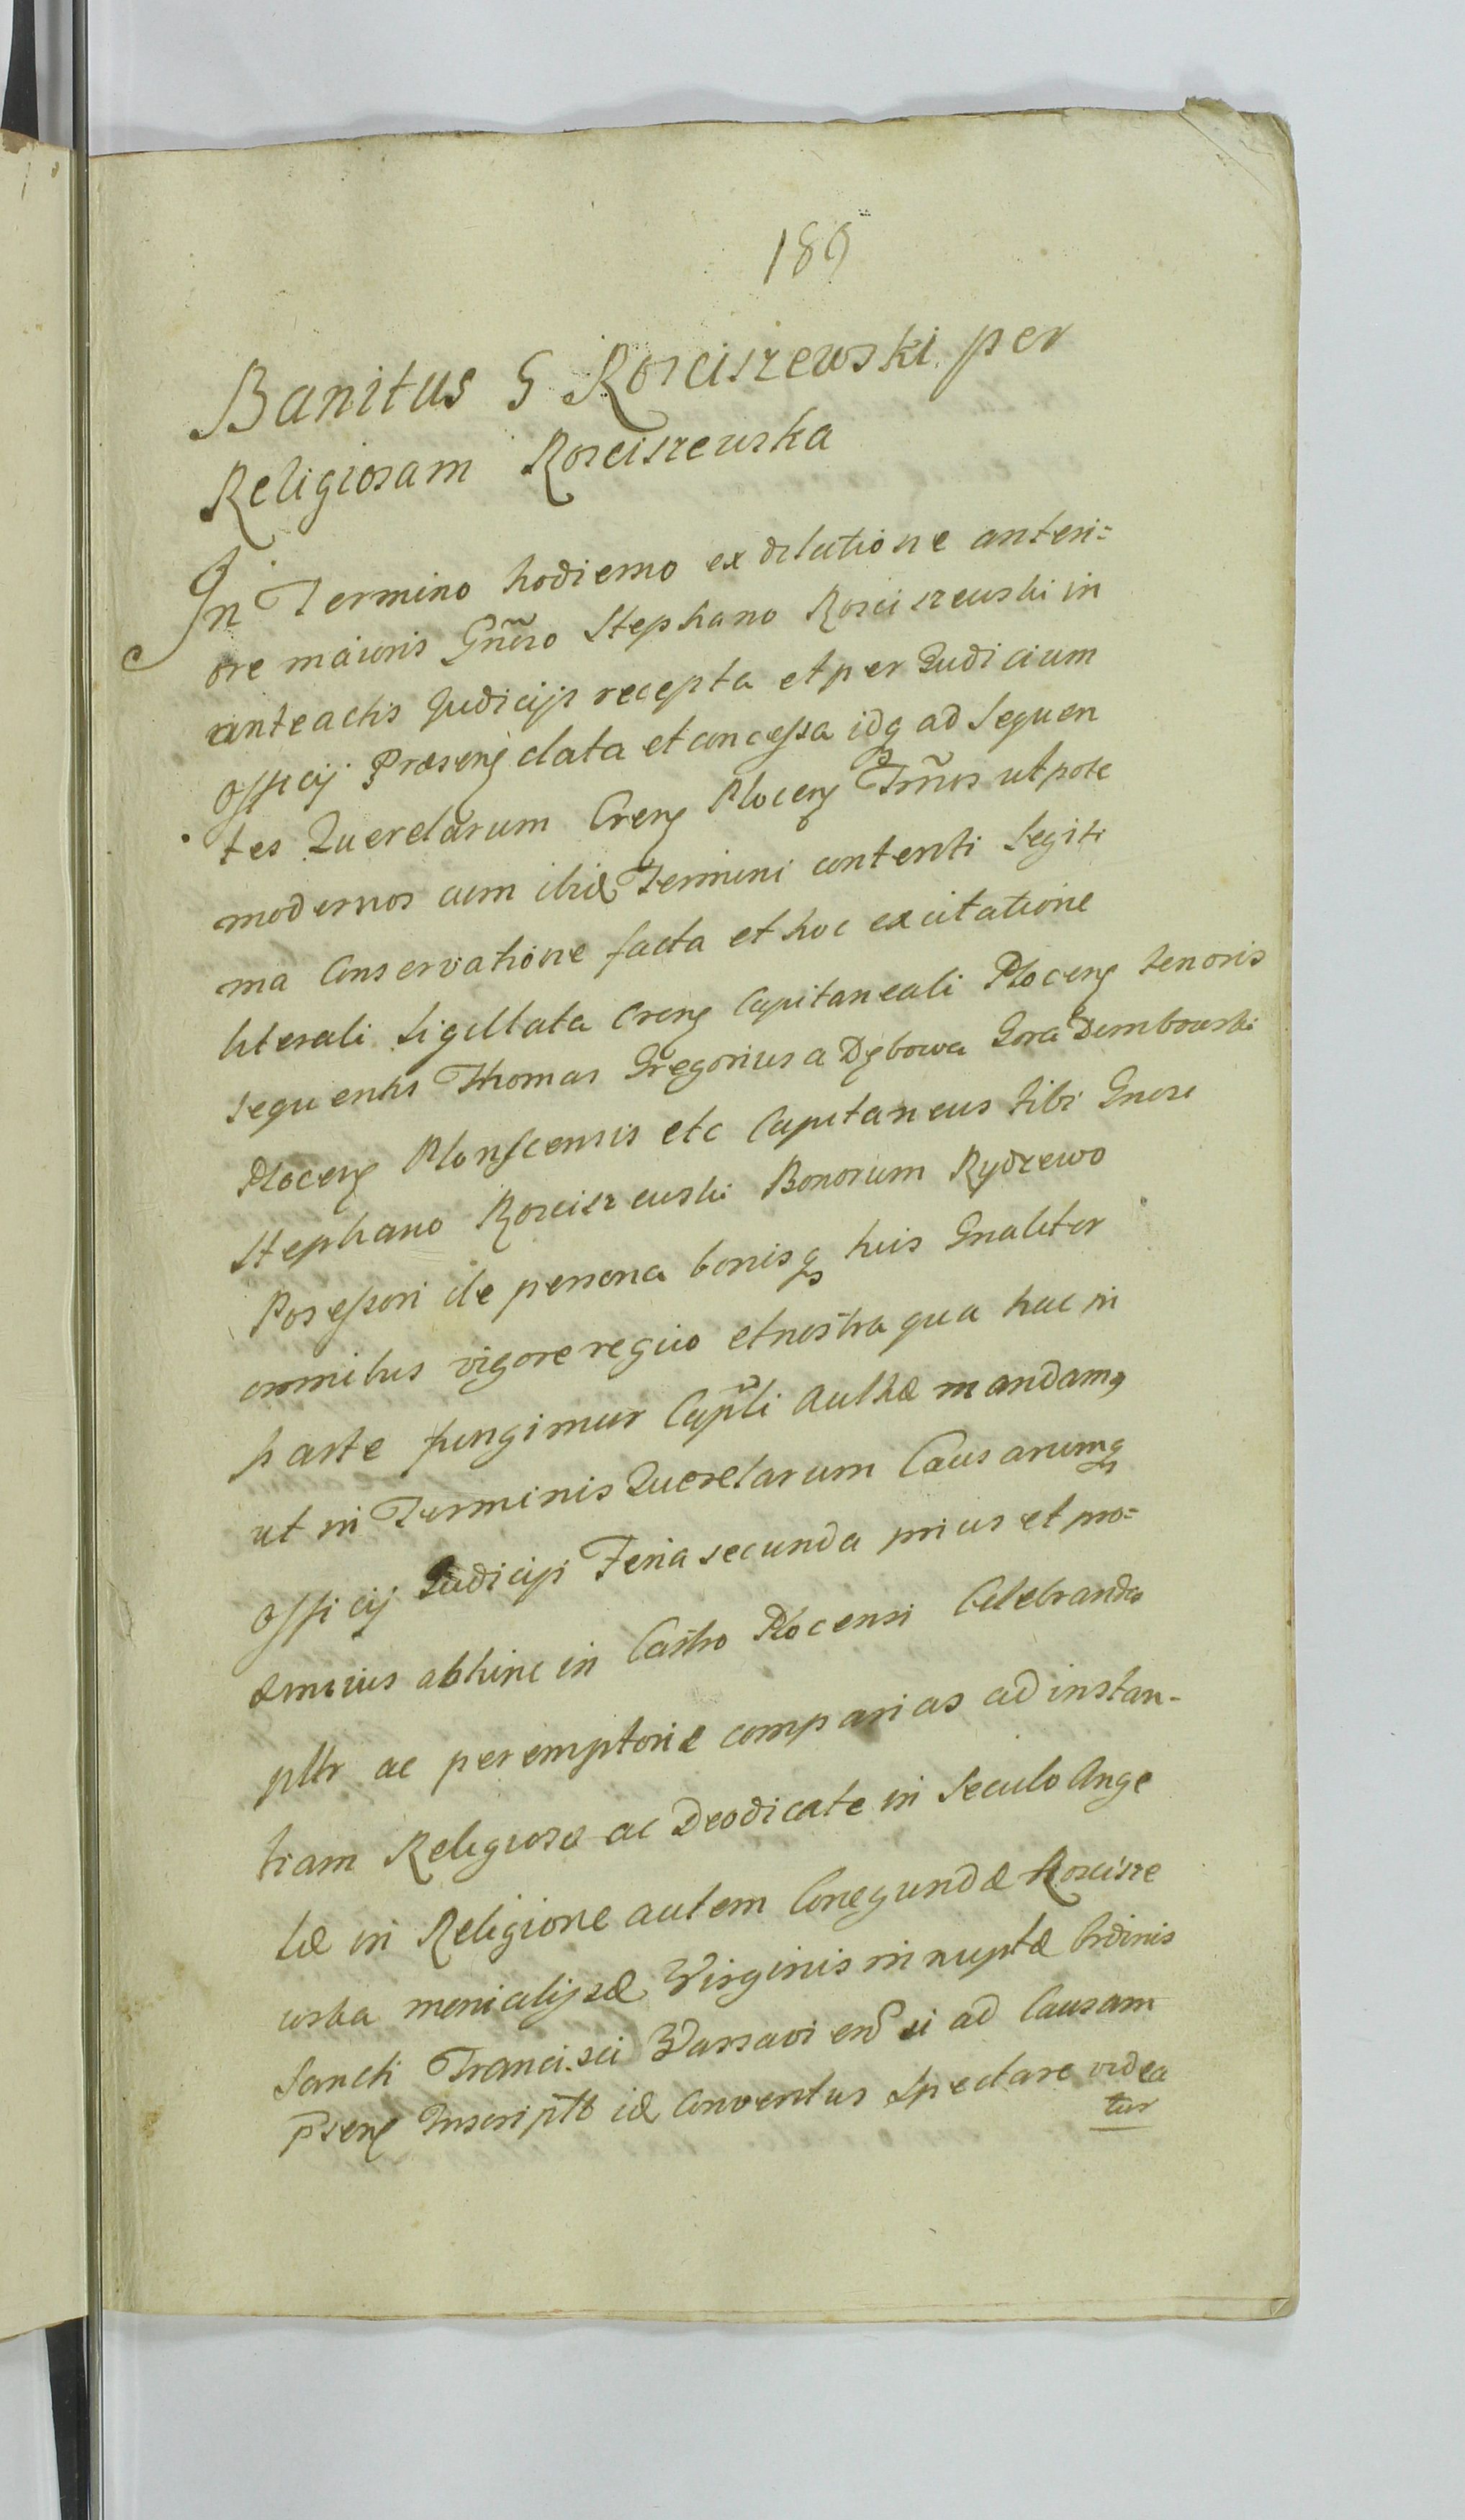 189
Banitus G Rosciszewski per
Religiosam Rosciszewska
In Termino hodierno ex dilatione anteri=
ore maioris Gnõso Stephano Rosciszewski in
anteactis Judicijs recepta et per Judicium
Officij Præsenę data et concessa idq ad sequen
tes Querelarum Crenę Plocenę Trños utpote
modernos cum ibid Termini contenti legiti
ma Conservatione facta et hoc ex citatione
literali Sigillata Crenę Capitaneali Plocenę tenoris
sequentis Thomas Gregorius a Dębowa Gora Dembowski
Plocenę Plonscensis etc Capitaneus tibi Gnoso
Stephano Rosciszewski Bonorum Rydzewo
Possessori de persona bonisq tuis Gnaliter
omnibus vigore regio et nostra qua hac in
parte fungimur Capłli Authæ mandamq
ut in Terminis Querelarum Causarumq
Officij Judicijs Feria secunda prius et pro=
xmius abhinc in Castro Plocensi Celebrandis
pltr ac peremptoriæ comparias ad instan-
tiam Religiosæ ac Deodicate in Seculo Ange
læ in Religione autem Conegundæ Roscisze
wska monialissæ Virginis innuptæ Ordinis
Sancti Francisci Warsavi enę si ad Causam
psenę Inscriptłr id Conventus Spectare videa
tur